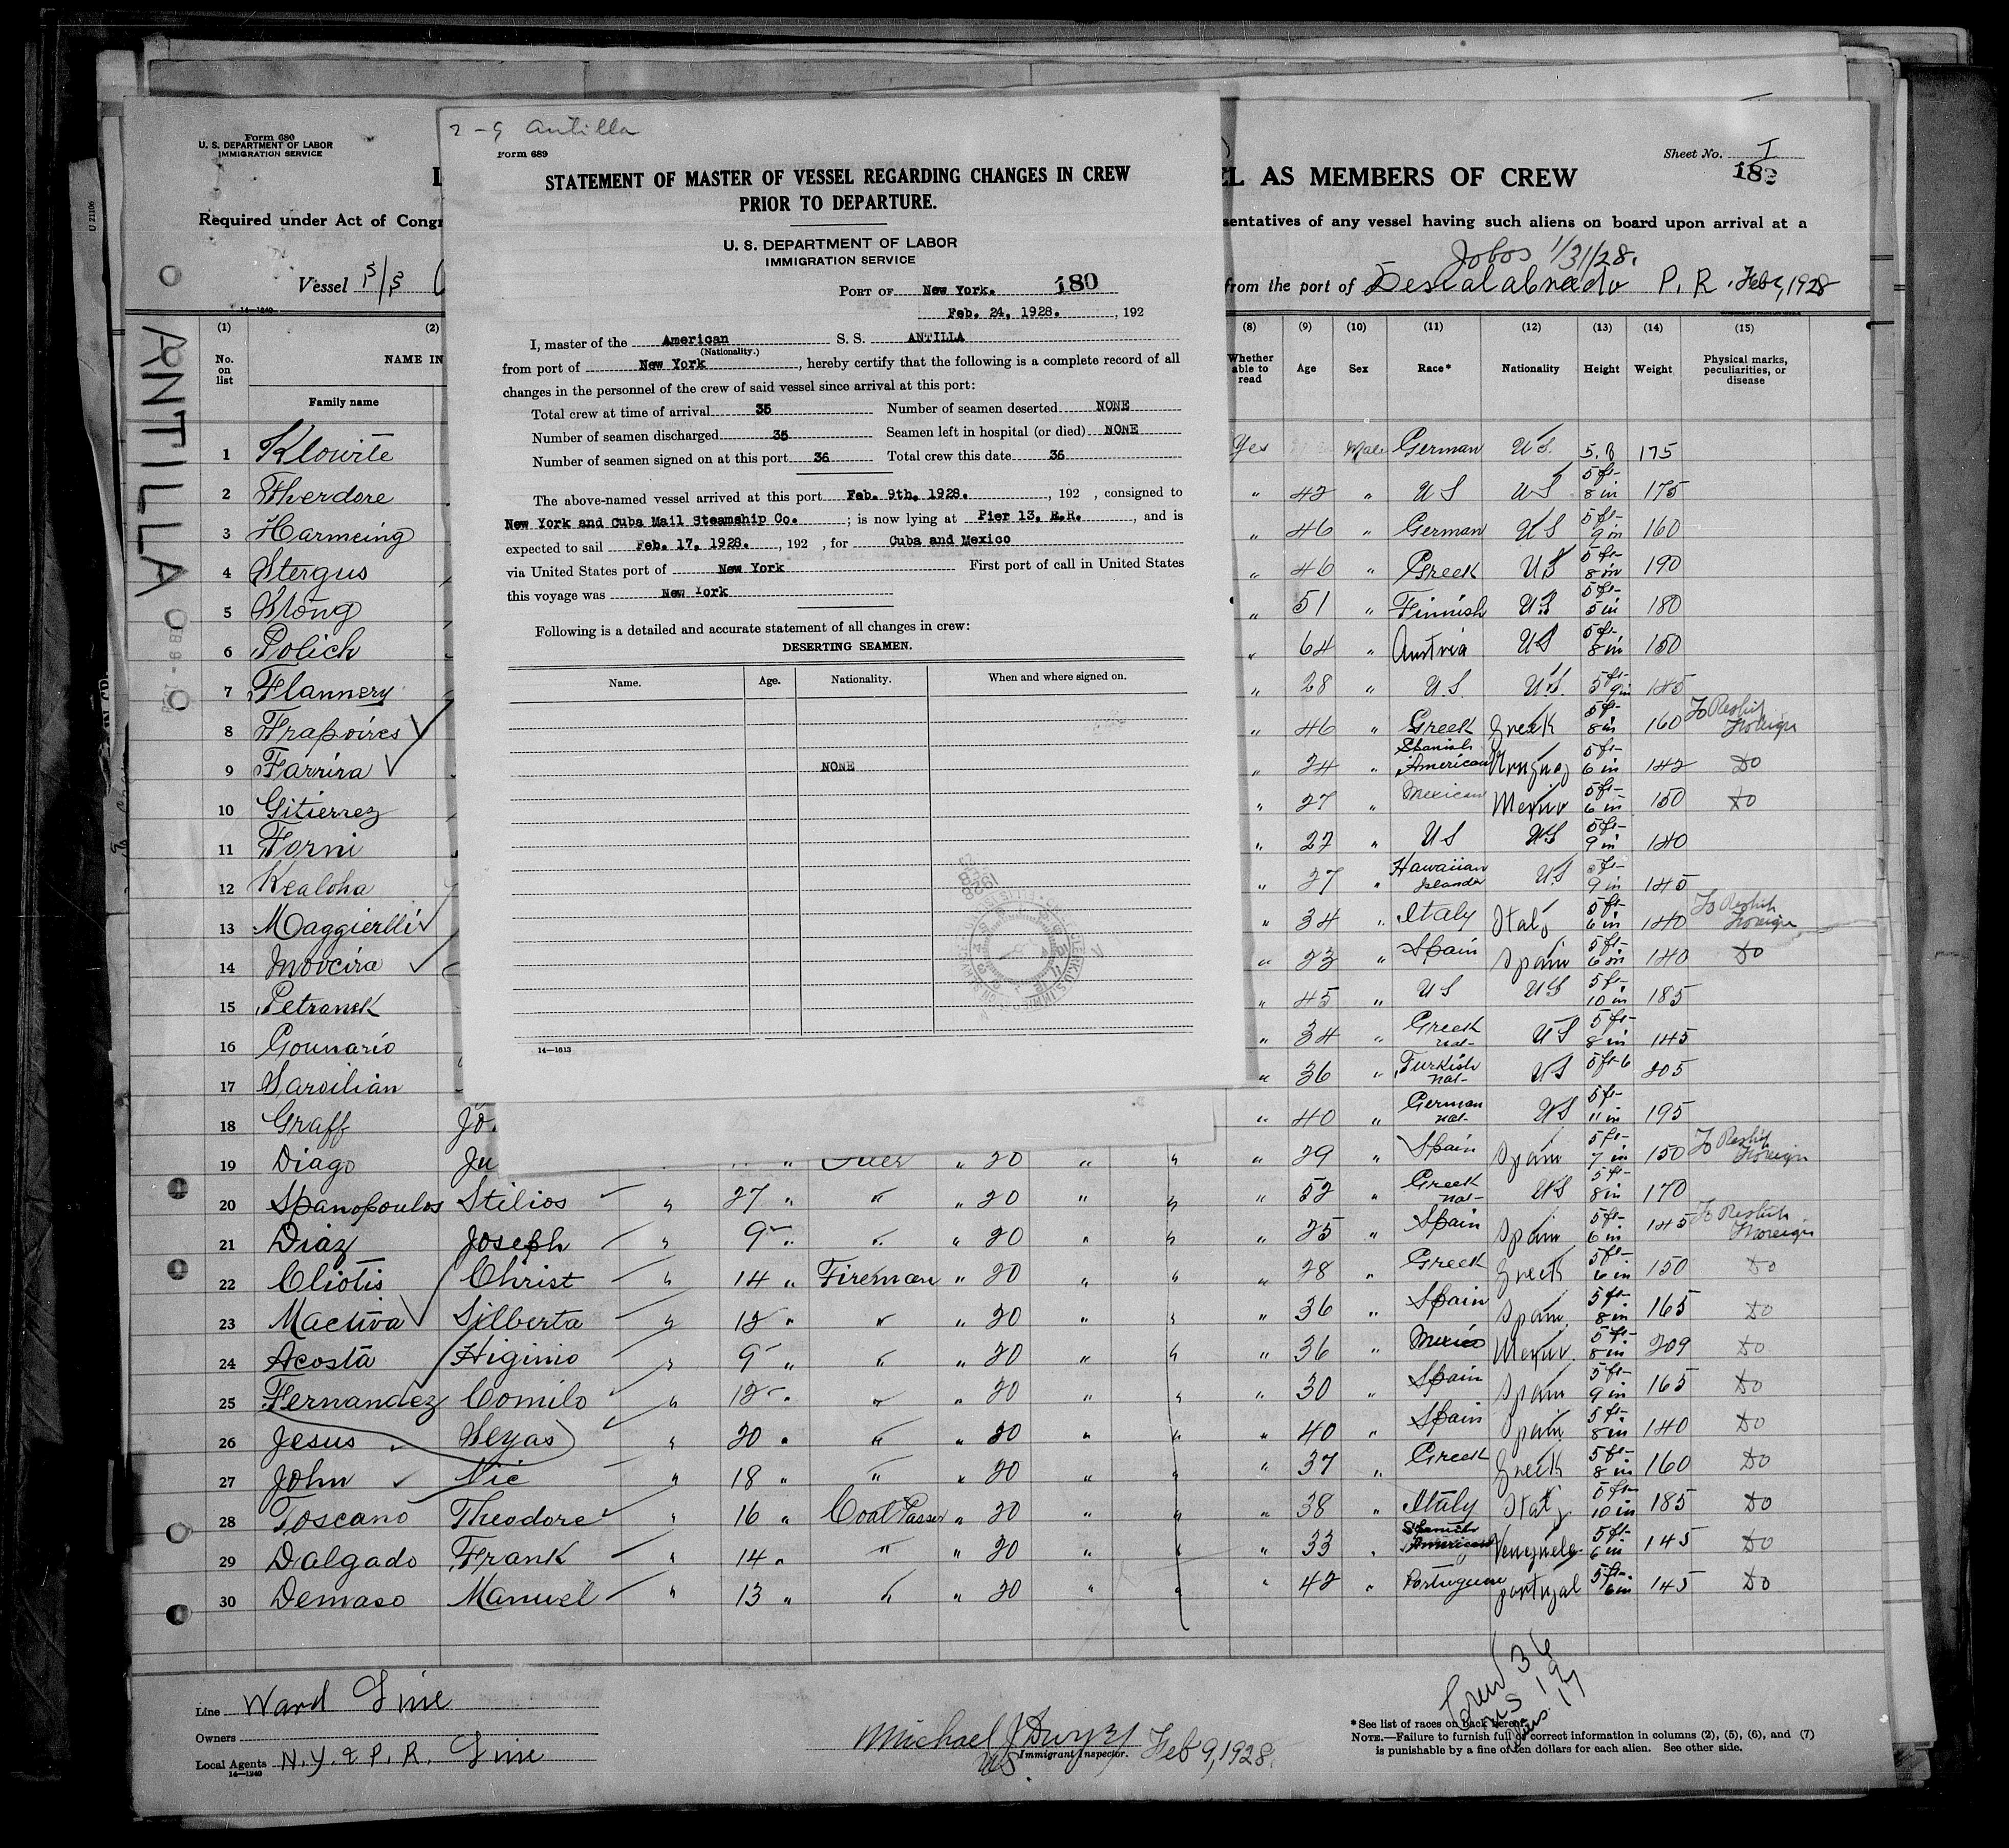 2-9 Antilla
Form 689
STATEMENT OF MASTER OF VESSEL REGARDING CHANGES IN CREW
PRIOR TO DEPARTURE.
U. S. DEPARTMENT OF LABOR
IMMIGRATION SERVICE
PORT OF New York. 180
Feb. 24, 1928. , 192
I, master of the American S. S. ANTILLA
(Nationality.)
from port of New York , hereby certify that the following is a complete record of all
changes in the personnel of the crew of said vessel since arrival at this port:
Total crew at time of arrival 35 Number of seamen deserted NONE
Number of seamen discharged 35 Seamen left in hospital (or died) NONE
Number of seamen signed on at this port 36 Total crew this date 36
The above-named vessel arrived at this port Feb. 9th, 1928. , 192 , consigned to
New York and Cuba Mail Steamship Co. ; is now lying at Pier 13, E.R. , and is
expected to sail Feb. 17, 1928. , 192 , for Cuba and Mexico
via United States port of New York First port of call in United States
this voyage was New York
Following is a detailed and accurate statement of all changes in crew:
DESERTING SEAMEN.
Name. Age. Nationality. When and where signed on.
NONE
14-1613
Form 680
U. S. DEPARTMENT OF LABOR
IMMIGRATION SERVICE
Sheet No. I
182
EL AS MEMBERS OF CREW
Required under Act of Congr
sentatives of any vessel having such aliens on board upon arrival at a
Jobos 1/31/28.
Vessel S/S
from the port of Descalabrado P. R. Feb 2, 1928
14-1240
ANTILLA
(1) (2) (8) (9) (10) (11) (12) (13) (14) (15)
No. on list NAME IN Family name Whether able to read Age Sex Race* Nationality Height Weight Physical marks, peculiarities, or disease
1 Klowite Yes Male German US 5.8 175
2 Therdore " 42 " US US 5 ft- 8 in 175
3 Harmeing " 46 " German US 5 ft- 9 in 160
4 Stergus " 46 " Greek US 5 ft- 8 in 190
5 Stong " 51 " Finnish US 5 ft- 5 in 180
6 Polich " 64 " Austria US 5 ft- 8 in 150
7 Flannery " 28 " U.S. U.S. 5 ft- 9 in 145
8 Frapoires " 46 " Greek Greek 5 ft- 8 in 160 To Reship Foreign
9 Farrira " 24 " Spanish American Uruguay 5 ft- 6 in 142 Do
10 Gitierrez " 27 " Mexican Mexico 5 ft- 6 in 150 Do
11 Forni " 27 " US US 5 ft- 9 in 140
12 Kealoha " 27 " Hawaiian Islander US 5 ft- 9 in 145
13 Maggierlli " 34 " Italy Italy 5 ft- 6 in 140 To Reship Foreign
14 Movcira " 23 " Spain Spain 5 ft- 6 in 140 Do
15 Petranek " 45 " US US 5 ft- 10 in 185
16 Gounario " 34 " Greek nat- US 5 ft- 8 in 145
17 Saroilian " 36 " Turkish nat- US 5 ft-6 205
18 Graff Jo " 40 " German nat- US 5 ft- 11 in 195
19 Diago Ju " Oiler " 20 " " " 29 " Spain Spain 5 ft- 7 in 150 To Reship Foreign
20 Spanopoulos Stilios " 27 " " " 20 " " " 52 " Greek nat- US 5 ft- 8 in 170
21 Diaz Joseph " 9 " " " 20 " " " 25 " Spain Spain 5 ft- 6 in 145 To Reship Foreign
22 Cliotis Christ " 14 " Fireman " 20 " " " 28 " Greek Greek 5 ft- 6 in 150 Do
23 Mactiva Silberta " 12 " " " 20 " " " 36 " Spain Spain 5 ft- 8 in 165 Do
24 Acosta Higinio " 9 " " " 20 " " " 36 " Mexico Mexico 5 ft- 8 in 209 Do
25 Fernandez Comilo " 12 " " " 20 " " " 30 " Spain Spain 5 ft- 9 in 165 Do
26 Jesus Seyas " 20 " " " 20 " " " 40 " Spain Spain 5 ft- 8 in 140 Do
27 John Nic " 18 " " " 20 " " " 37 " Greek Greek 5 ft- 8 in 160 Do
28 Toscano Theodore " 16 " Coal Passer " 20 " " " 38 " Italy Italy 5 ft- 10 in 185 Do
29 Dalgado Frank " 14 " " " 20 " " " 33 " Spanish American Venezuela 5 ft- 6 in 145 Do
30 Demaso Manuel " 13 " " " 20 " " " 42 " Portuguese Portugal 5 ft- 6 in 145 Do
Crew 36
US 19
Aliens 17
Line Ward Line
Owners
Local Agents N.Y. & P. R. Line
14-1240
Michael J Dwyer Feb 9, 1928.
US Immigrant Inspector.
*See list of races on back hereof.
NOTE.—Failure to furnish full or correct information in columns (2), (5), (6), and (7)
is punishable by a fine of ten dollars for each alien. See other side.